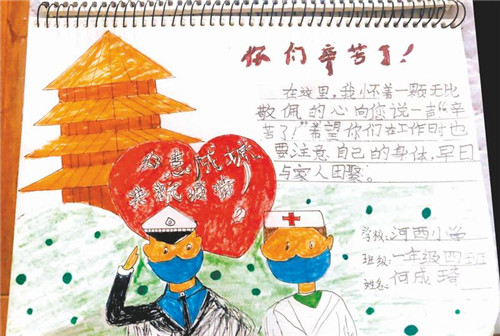 你们辛苦了！
在这里，我怀着一颗无比
敬佩的心向您说一声“辛
苦了！”希望你们在工作时也
要注意自己的身体，早日
与家人团聚。
众志成城
共抗病情
学校：河西小学
班级：一年级四班
姓名：何成琦